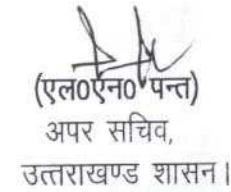 (एल0एन0 पन्त)
अपर सचिव,
उत्तराखण्ड शासन।